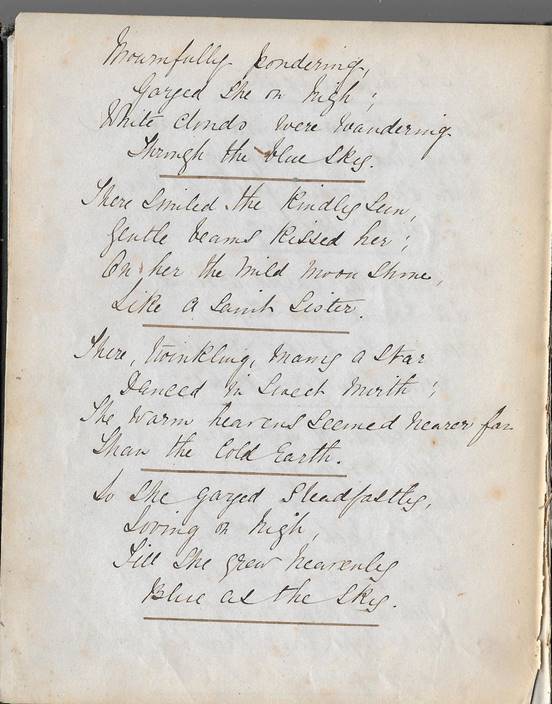 Mournfully pondering,
Gazed she on high;
White clouds were wandering
Through the blue sky.
There smiled the kindly Sun,
Gentle beams kissed her;
On her the mild moon shone,
Like a Saint Sister.
There, twinkling, many a star
Danced in Sweet Mirth;
The warm heavens seemed nearer far
Than the Cold Earth.
So she gazed steadfastly,
Loving on high,
Till she grew heavenly
Blue as the Sky.